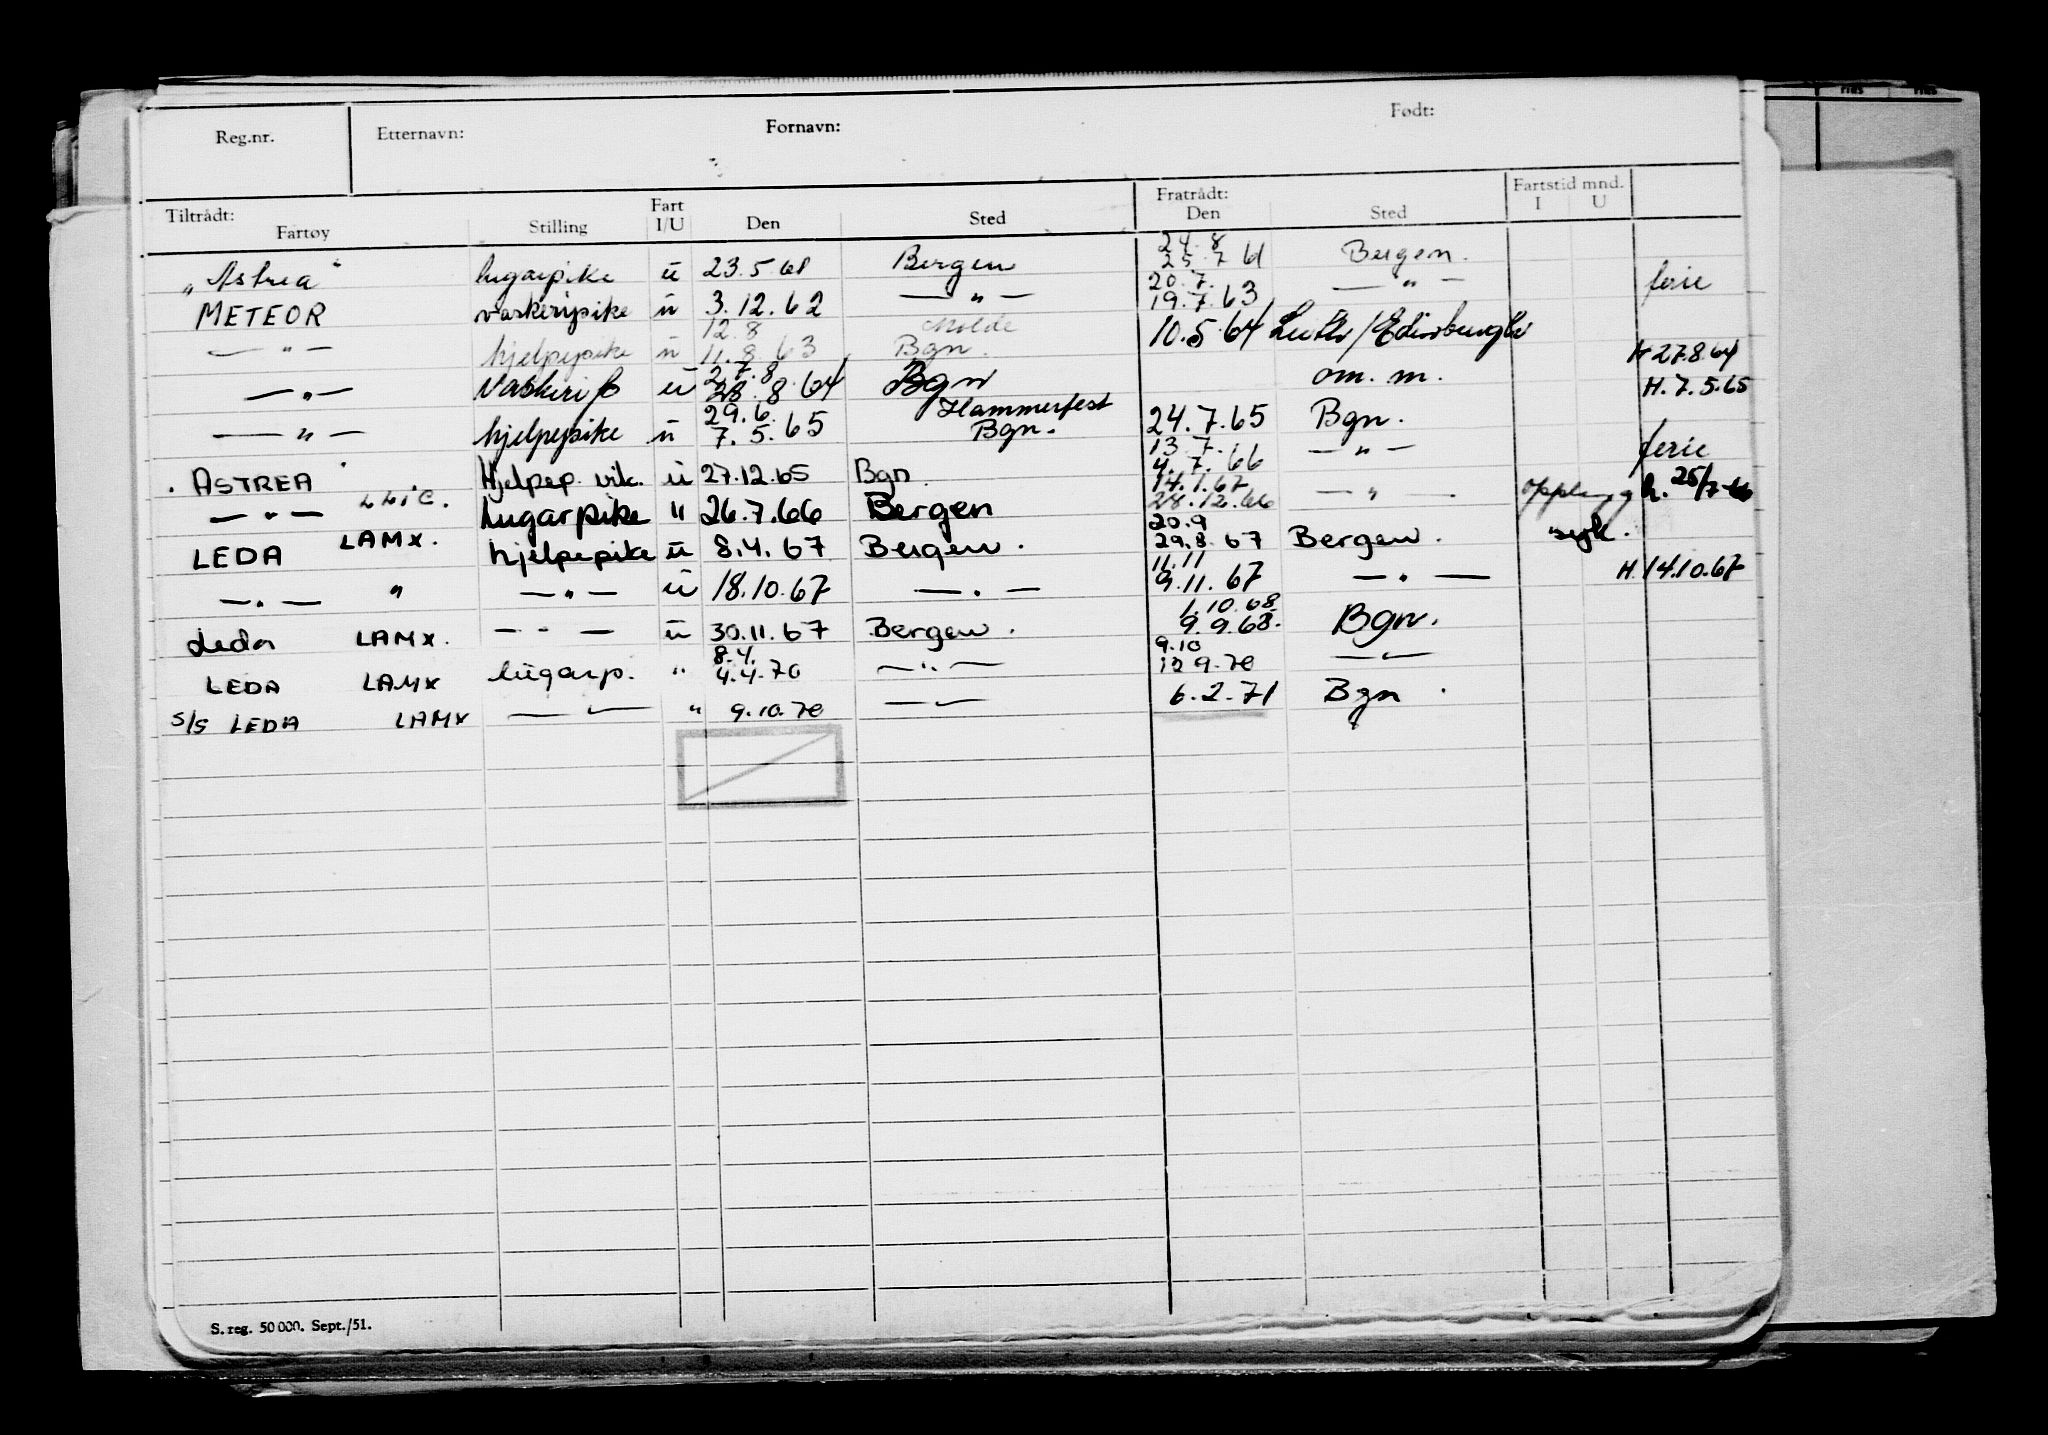 Reg.nr. Etternavn: Fornavn: Født:
Tiltrådt: Fratrådt: Fartstid mnd.
Fartøy Stilling Fart I/U Den Sted Den Sted I U
"Astrea" lugarpike u 23.5.61 Bergen 24.8 25.7 61 Bergen.
METEOR vaskeripike u 3.12.62 — " — 20.7. 19.7.63 — " — ferie
— " — hjelpepike u 12.8 11.8.63 Molde Bgn. 10.5.64 Leith/Edinburgh
— " — vaskeri u 27.8 28.8.64 Bgn om. m. H 27.8.64
— " — hjelpepike u 29.6. 7.5.65 Hammerfest Bgn. 24.7.65 Bgn. H. 7.5.65
ASTREA Hjelpep. vik. u 27.12.65 Bgn. 13.7. 4.7.66 — " — ferie
— " — LLIC. lugarpike " 26.7.66 Bergen 14.1.67 28.12.66 — " — opplegg h. 25/7-66
LEDA LAMX. hjelpepike u 8.4.67 Bergen. 20.9 29.8.67 Bergen. syk.
— " — " — " — u 18.10.67 — " — 11.11 9.11.67 — " — H. 14.10.67
Leda LAMX. — " — u 30.11.67 Bergen. 1.10.68 9.9.68. Bgn.
LEDA LAMX lugarp. " 8.4. 4.4.70 — " — 9.10 12 9.70 — " —
S/S LEDA LAMX — " — " 9.10.70 — " — 6.2.71 Bgn.
S. reg. 50 000. Sept./51.